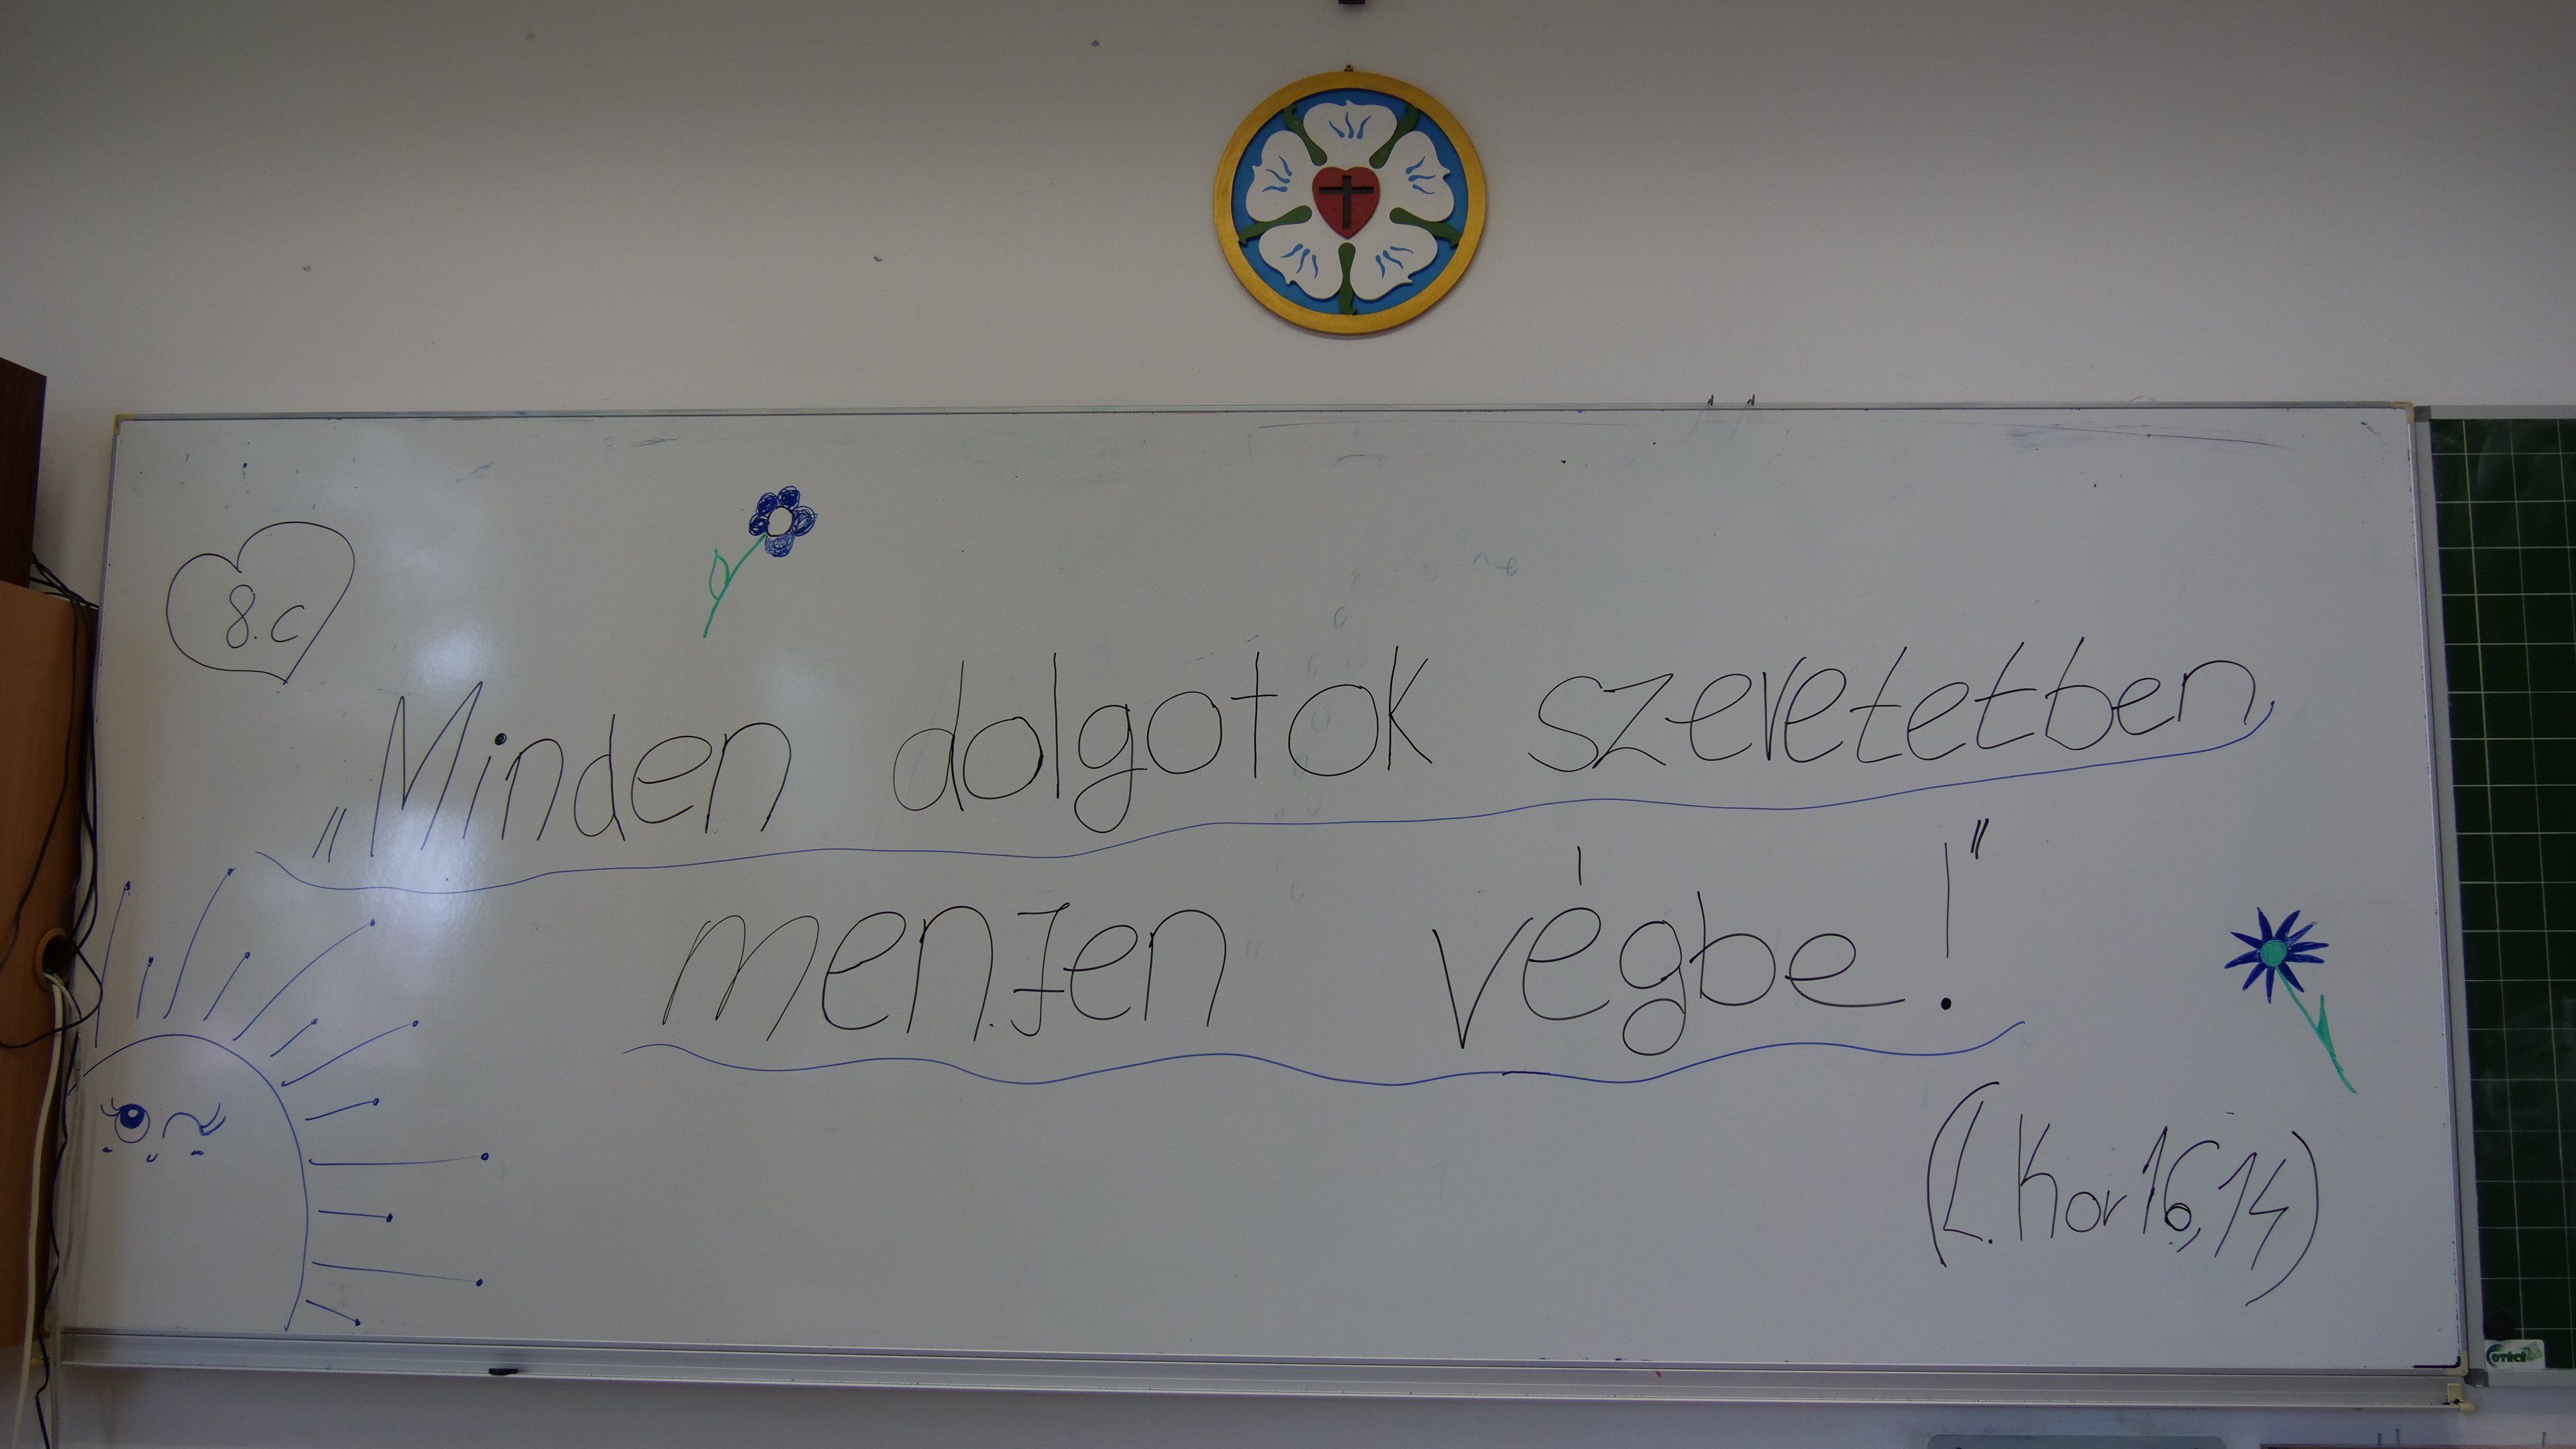 8.c
„Minden dolgotok szeretetben
menJen végbe!”
(I. Kor 16,14)